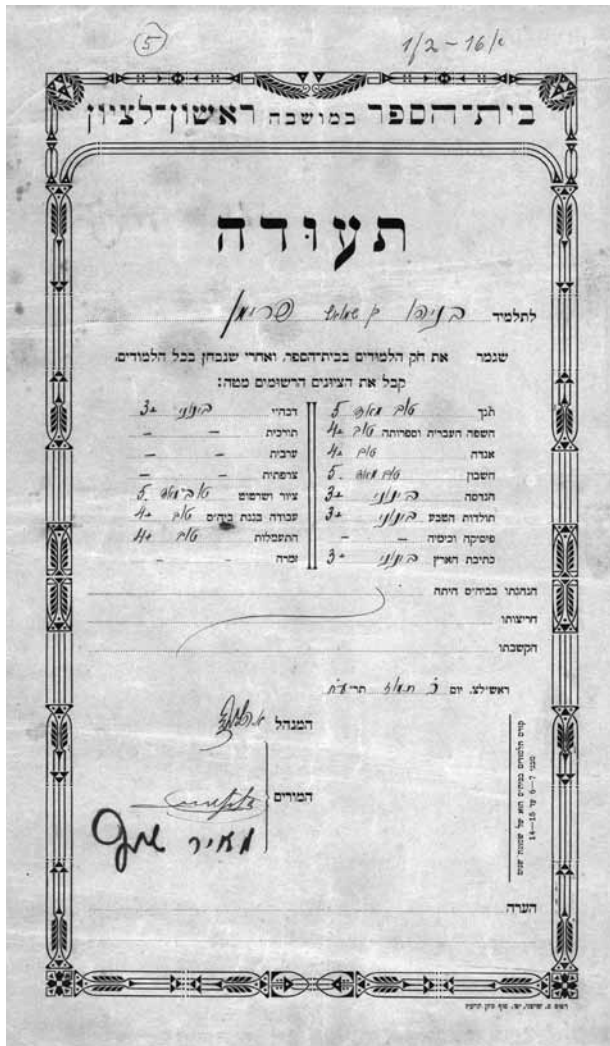 5
1/2-16/א
בית־הספר במושבה ראשון־לציון
תעודה
לתלמיד בניהו
שגמר את חק הלמודים בבית־הספר, ואחרי שנבחן בכל הלמודים,
קבל את הציונים הרשומים מטה:
תנך טוב מאד 5
השפה העברית וספרותה טוב 4
אגדה טוב 4
חשבון טוב מאד 5
הנדסה בינוני 3
תולדות הטבע בינוני 3
פיסיקה וכימיה – –
כתיבת הארץ בינוני 3
דבהי״י בינוני 3
תורכית – –
ערבית – –
צרפתית – –
ציור ושרטוט טוב מאד 5
עבודה בגנת ביה״ס טוב 4
התעמלות טוב 4
זמרה – –
הנהגתו בביה״ס היתה
חריצותו
הקשבתו
ראשל״צ, יום תמוז תרע״ח
המנהל
המורים
מאיר
קורס הלמודים בביה״ס הוא של שמונות שנים
מבני 6–7 עד 14–15
הערה